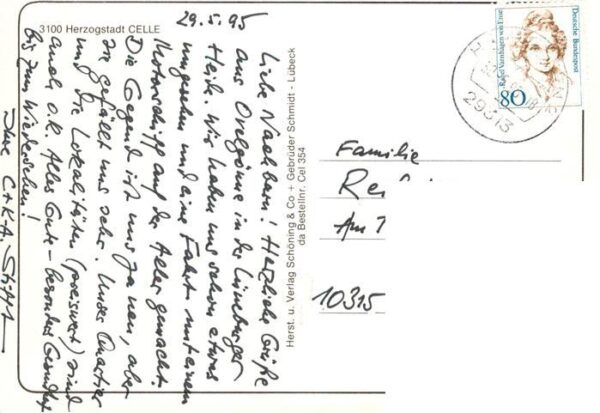 3100 Herzogstadt CELLE
29.5.95
Liebe Nachbarn! Herzliche Grüße
aus Oppershausen in der Lüneburger
Heide. Wir haben uns schon etwas
umgesehen und eine Fahrt mit einem
Motorschiff auf der Aller gemacht.
Die Gegend ist uns ja neu, aber
sie gefällt uns sehr. Unser Quartier
und die Lokalitäten (preiswert) sind
auch o.k. Alles Gute – besonders Gesundheit
bis zum Wiedersehen!
Ihre C + K.-A.
Herst. u. Verlag Schöning & Co + Gebrüder Schmidt - Lübeck
da Bestellnr. Cel 354
Deutsche Bundespost
Rahel Varnhagen von Ense
80
29313
Familie
Re
Am
10315